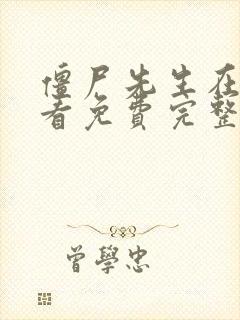 僵尸先生在
看免费完整
曾學忠